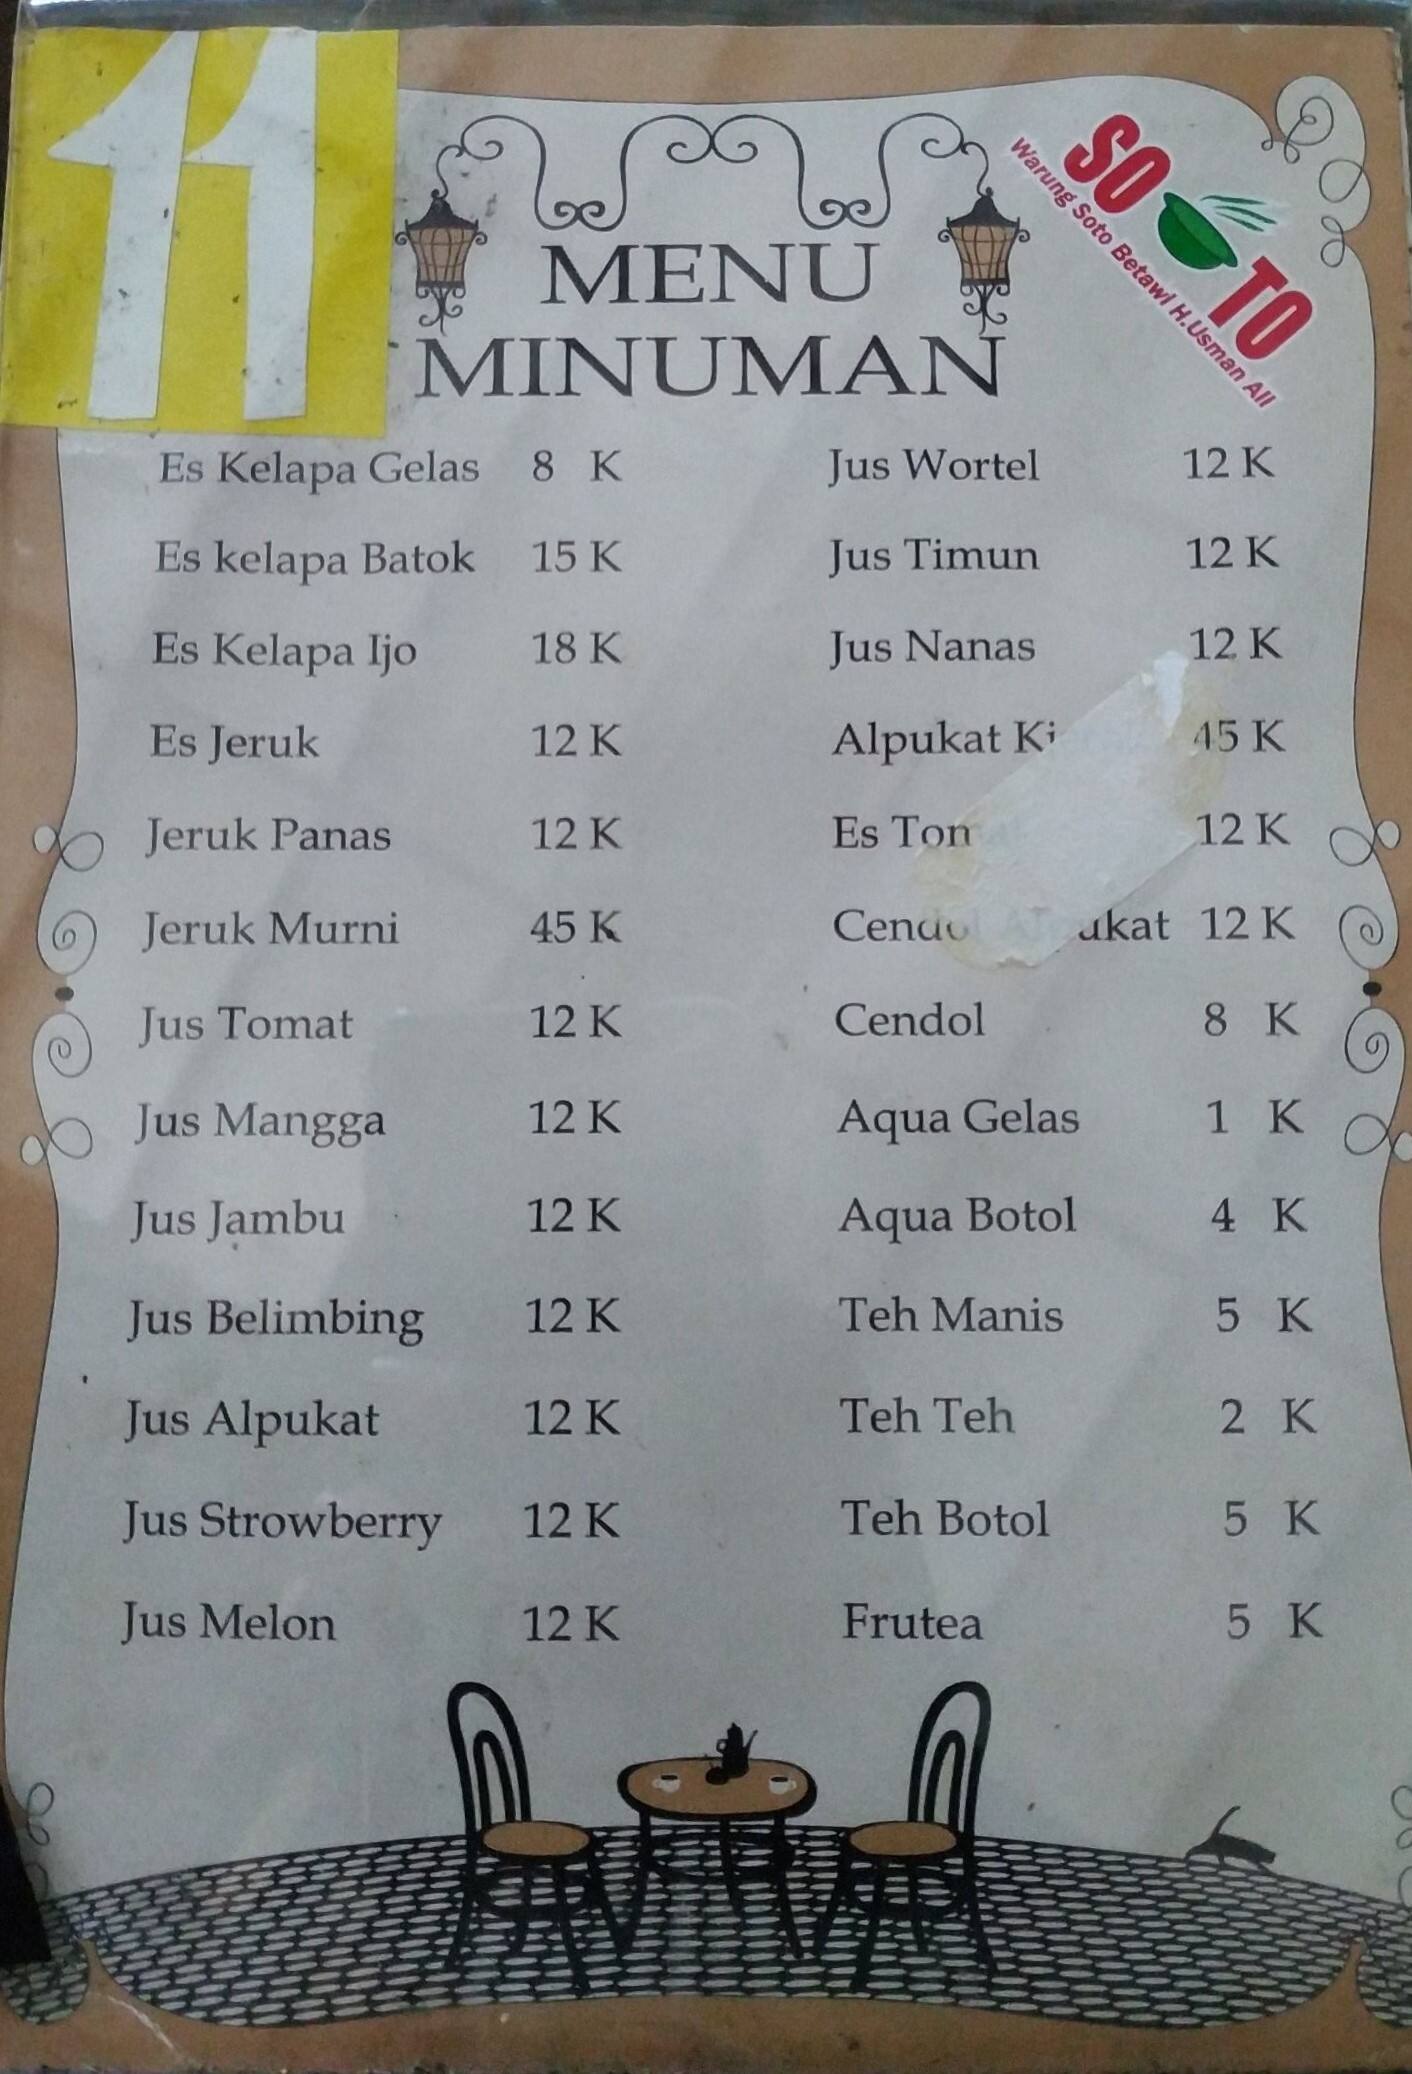 11
SO TO
Warung Soto Betawi H.Usman All
MENU
MINUMAN
Es Kelapa Gelas 8 K
Es kelapa Batok 15 K
Es Kelapa Ijo 18 K
Es Jeruk 12 K
Jeruk Panas 12 K
Jeruk Murni 45 K
Jus Tomat 12 K
Jus Mangga 12 K
Jus Jambu 12 K
Jus Belimbing 12 K
Jus Alpukat 12 K
Jus Strowberry 12 K
Jus Melon 12 K
Jus Wortel 12 K
Jus Timun 12 K
Jus Nanas 12 K
Alpukat 45 K
Es 12 K
Cendol Alpukat 12 K
Cendol 8 K
Aqua Gelas 1 K
Aqua Botol 4 K
Teh Manis 5 K
Teh Teh 2 K
Teh Botol 5 K
Frutea 5 K